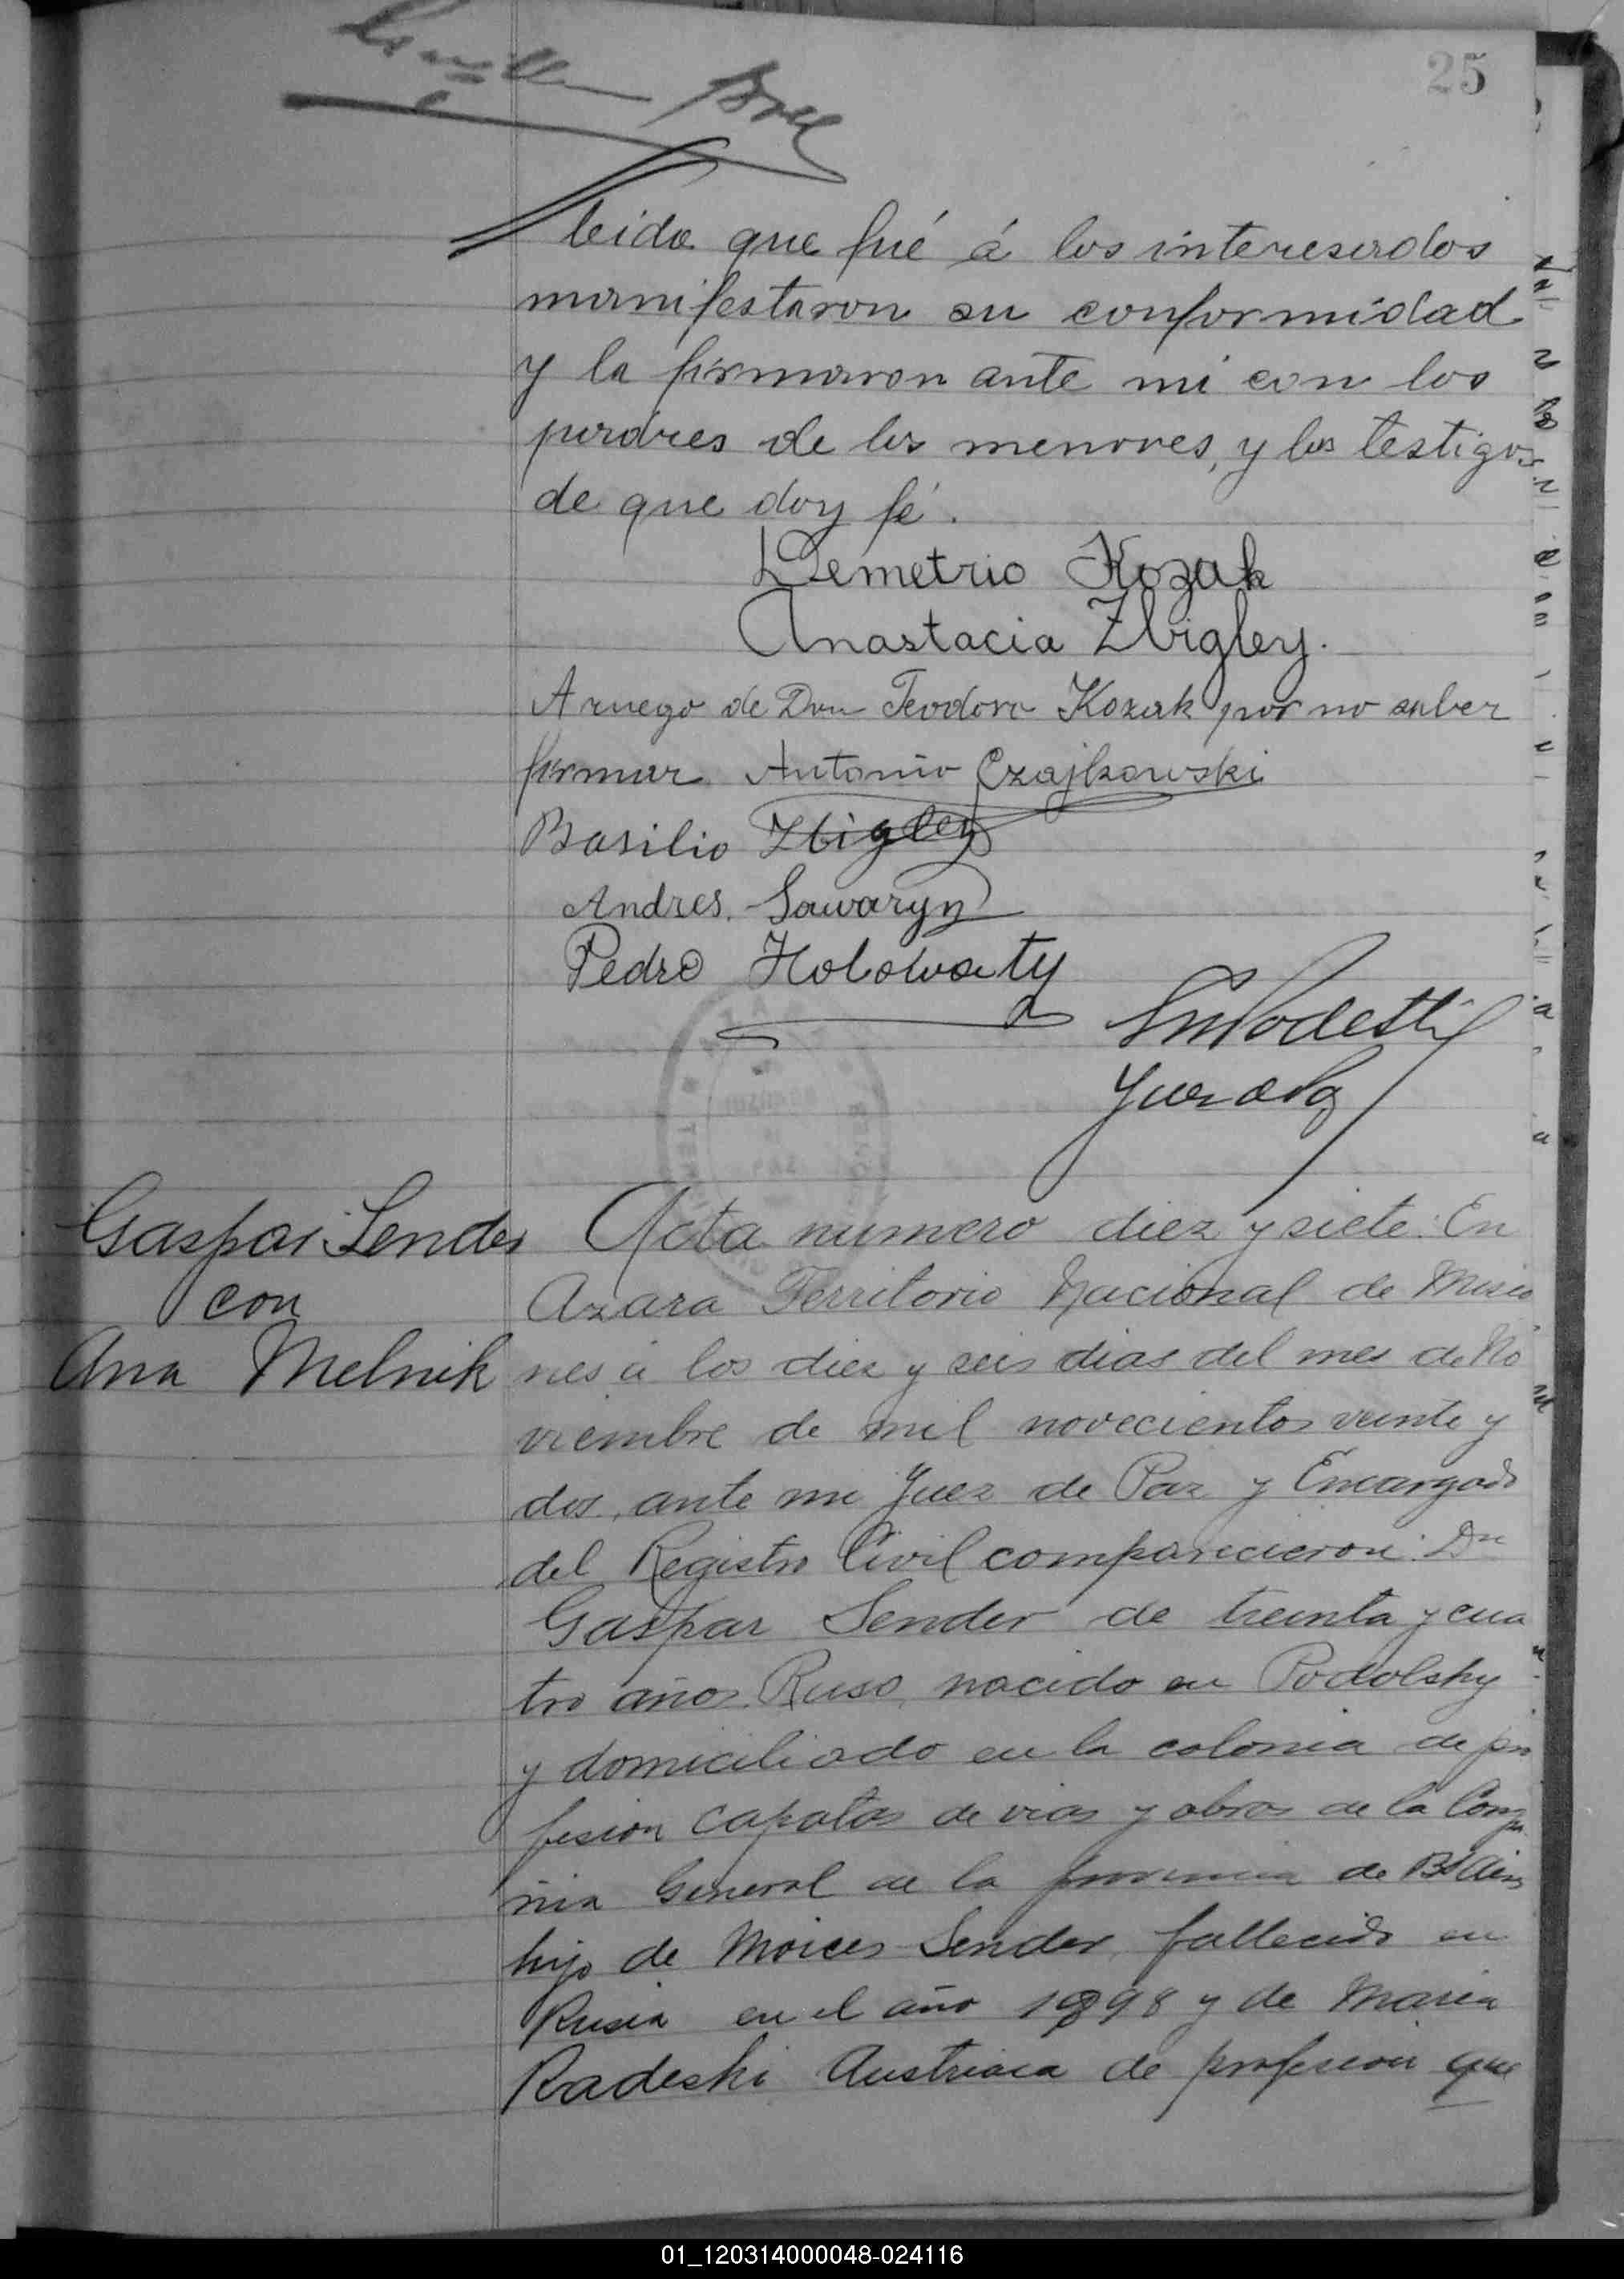 25
leida que fué á los interesados
manifestaron su conformidad
y la firmaron ante mi con los
padres de los menores, y los testigos
de que doy fé.
Demetrio Kozak
Anastacia Zbigley.
A ruego de Don Teodoro Kozak por no saber
firmar Antonio Czajkowski
Basilio Zbigley
Andres Sawaryn
Pedro Holowaty
Podesti
Juez de Paz
Gaspar Sender
con
Ana Melnik
Acta numero diez y siete: En
Azara Territorio Nacional de Misio
nes á los diez y seis dias del mes de No
viembre de mil novecientos veinte y
dos, ante mi Juez de Paz y Encargado
del Registro Civil comparecieron: Dn
Gaspar Sender de treinta y cua
tro años Ruso, nacido en Podolsky
y domiciliado en la colonia de pro
fesion capataz de vias y obras de la Compa
ñia General de la provincia de Bs Aires
hijo de Moices Sender, fallecido en
Rusia en el año 1898 y de Maria
Radeski Austriaca de profesion que
01_120314000048-024116